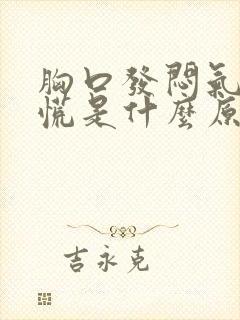 胸口發悶氣
慌是什麼原
吉永克